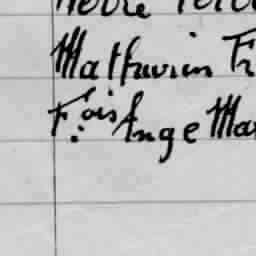 Mathurin Fr
F.ois Ange Mar